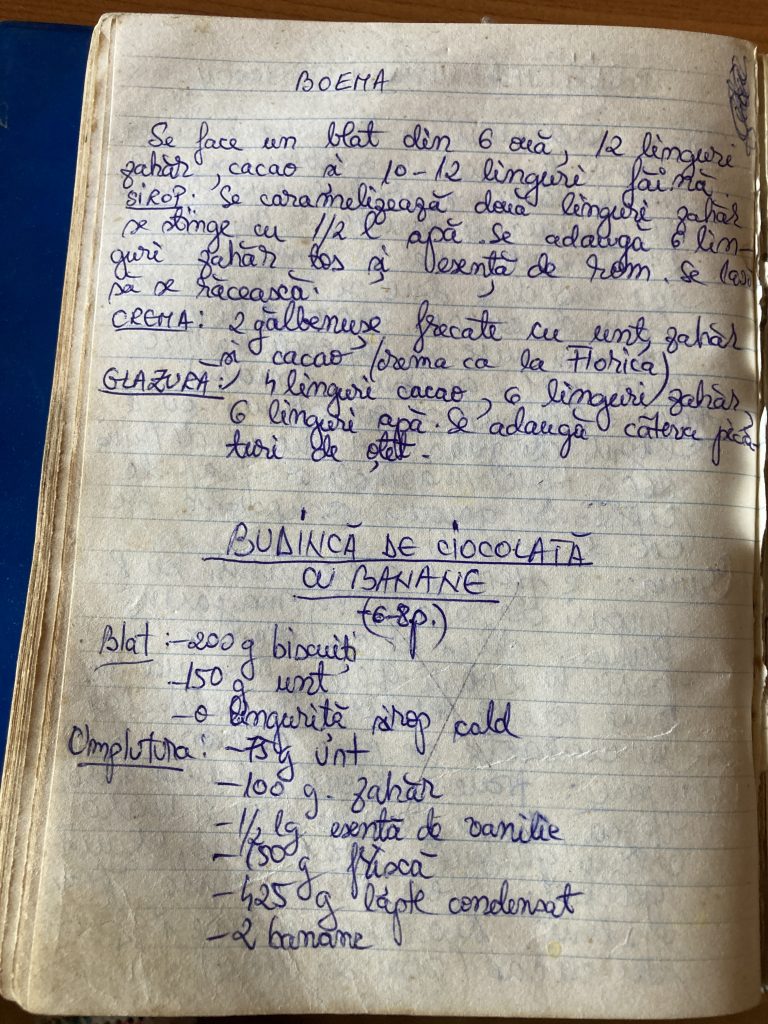 BOEMA
Se face un blat din 6 ouă, 12 linguri
zahăr, cacao și 10-12 linguri făină.
SIROP: Se caramelizează două linguri zahăr
se stinge cu 1/2 l apă. Se adaugă 6 lin-
guri zahăr tos și esență de rom. Se lasă
să se răcească.
CREMA: 2 gălbenușe frecate cu unt, zahăr
și cacao (crema ca la Florica)
GLAZURĂ: 4 linguri cacao, 6 linguri zahăr,
6 linguri apă. Se adaugă câteva pică-
turi de oțet.
BUDINCĂ DE CIOCOLATĂ
CU BANANE
(6-8p.)
Blat: -200 g biscuiți
-150 g unt
-o linguriță sirop cald
Umplutura: -75g unt
-100 g. zahăr
-1/2 lg esență de vanilie
-150 g frișcă
-425 g lapte condensat
-2 banane